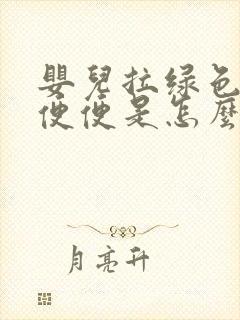 嬰兒拉绿色
便便是怎麼
月亮升